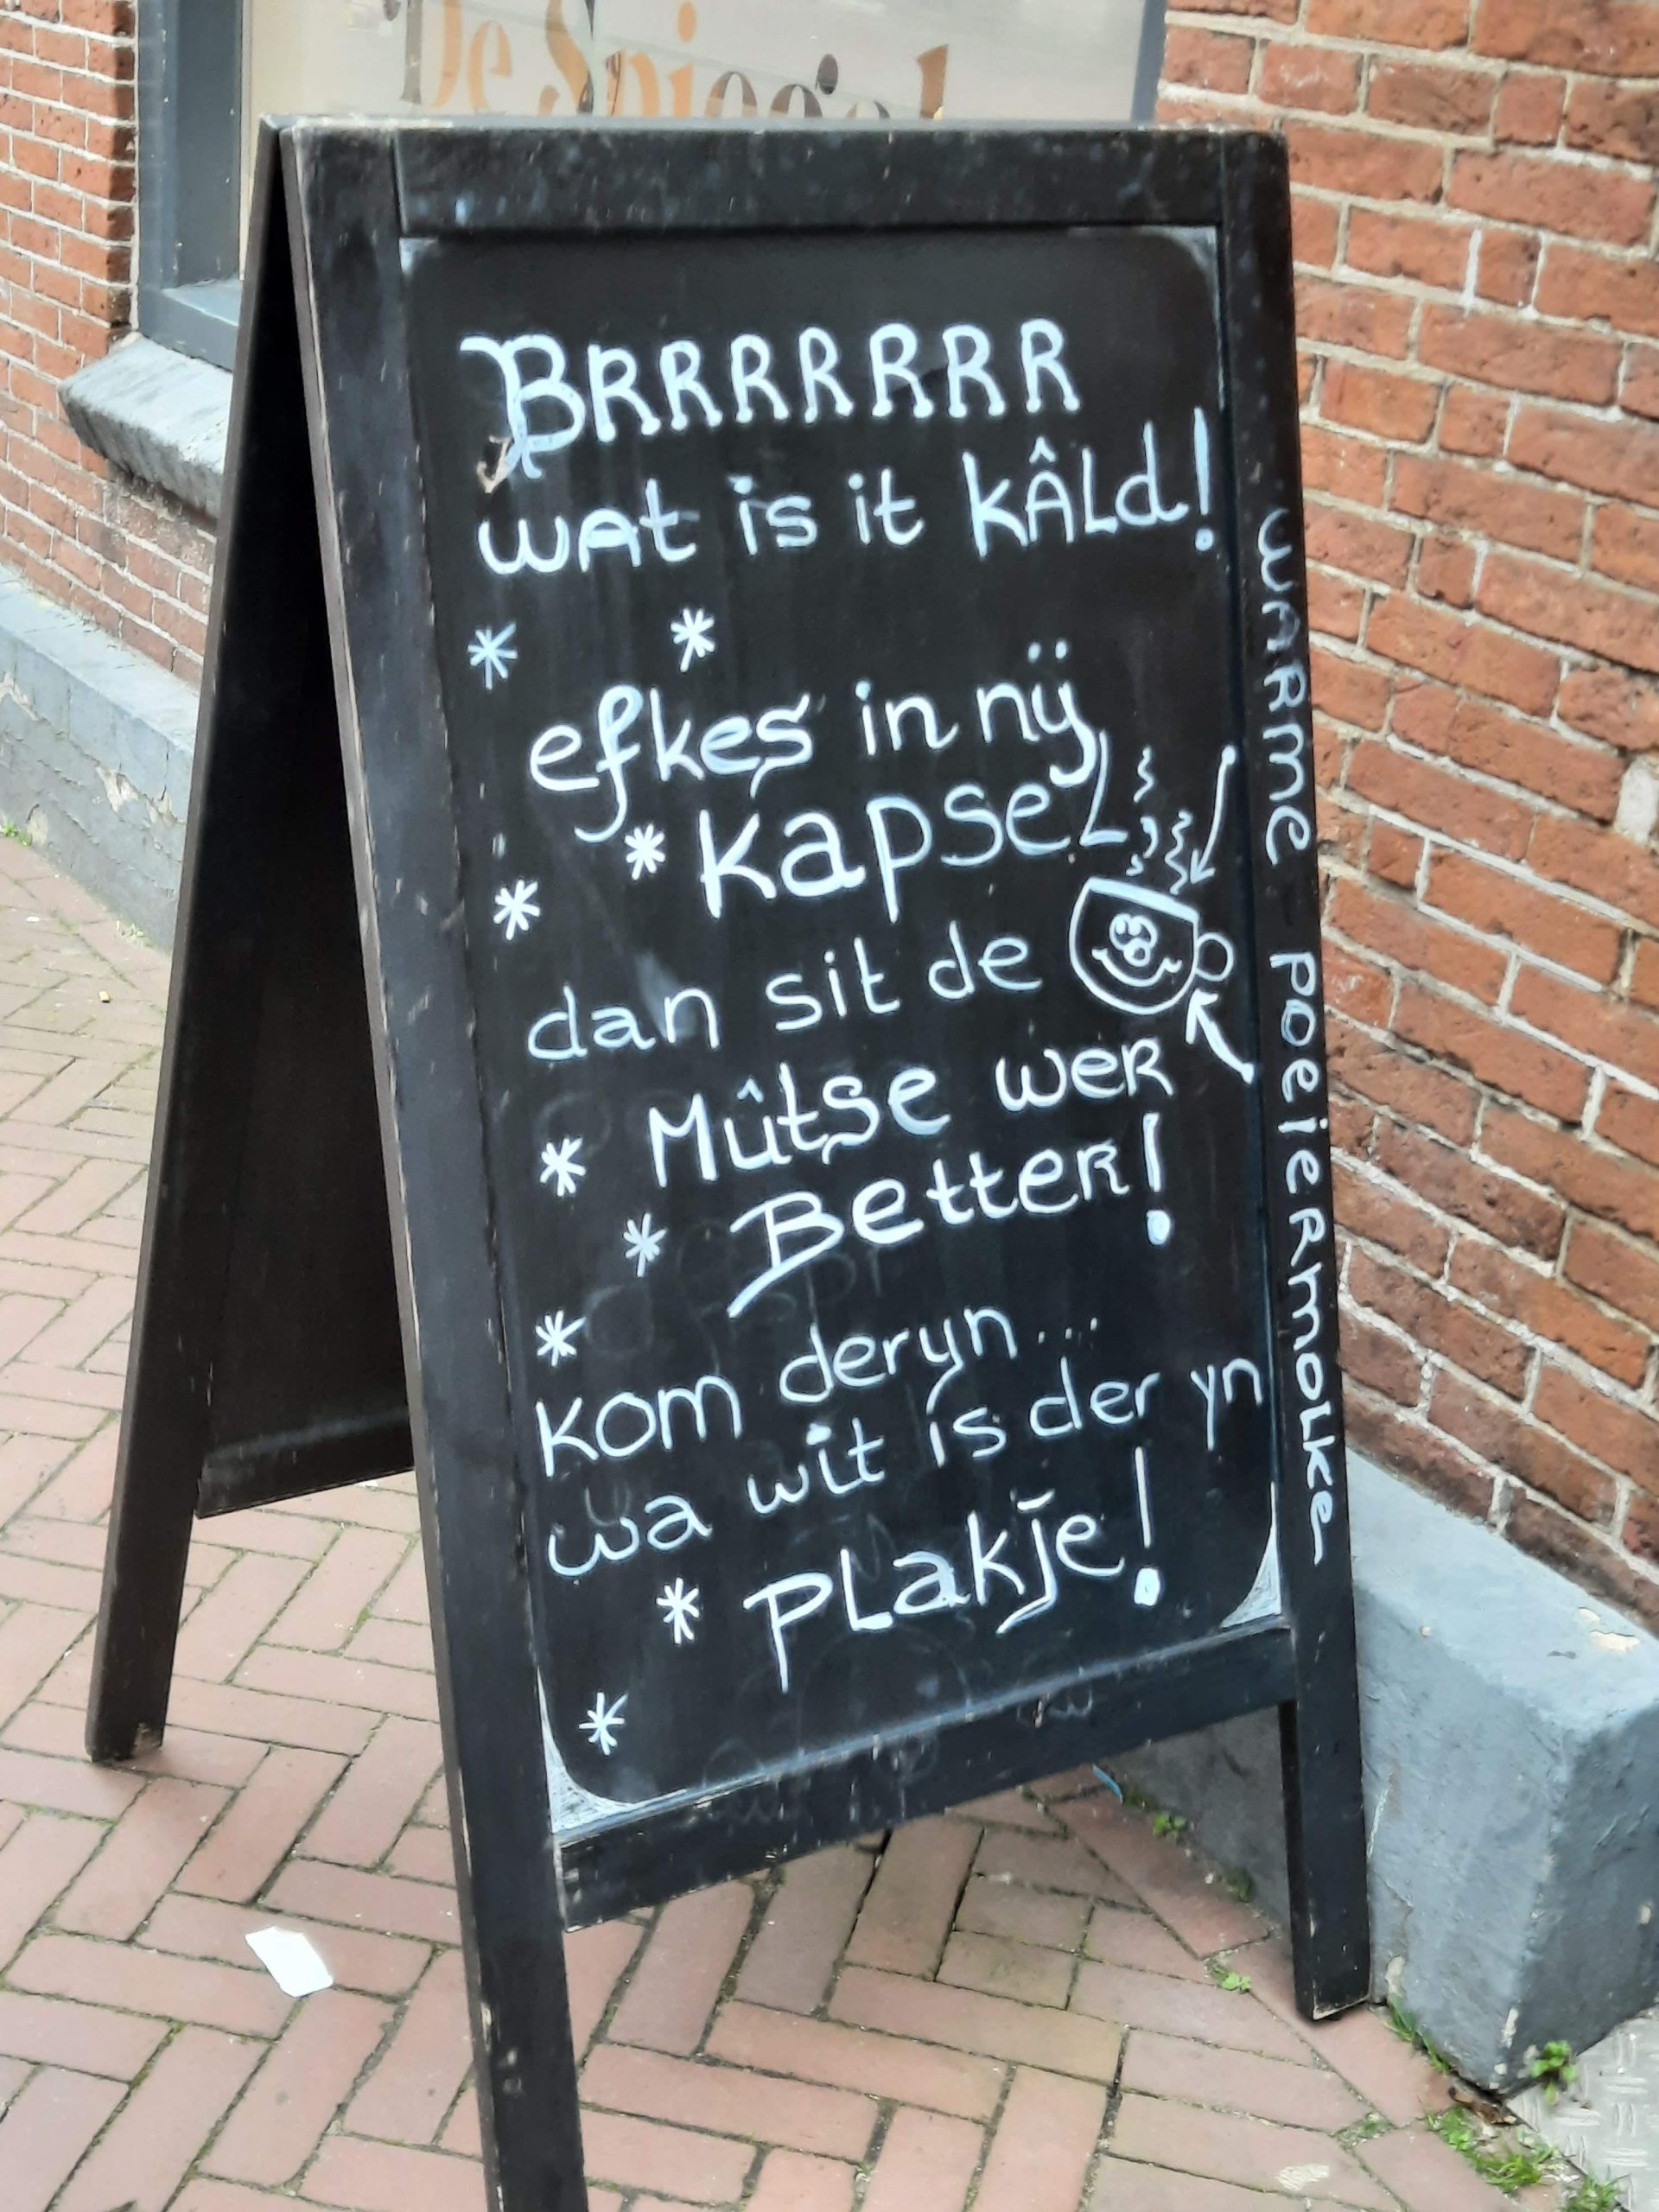 De Spiegel
BRRRRRRR
WAt is it KÂLd!
efkes in nÿ
KapseL
dan sit de
Mûtse weR
BetteR!
Kom deryn...
wa wit is der yn
PLakje!
WARme poeieRmoLke